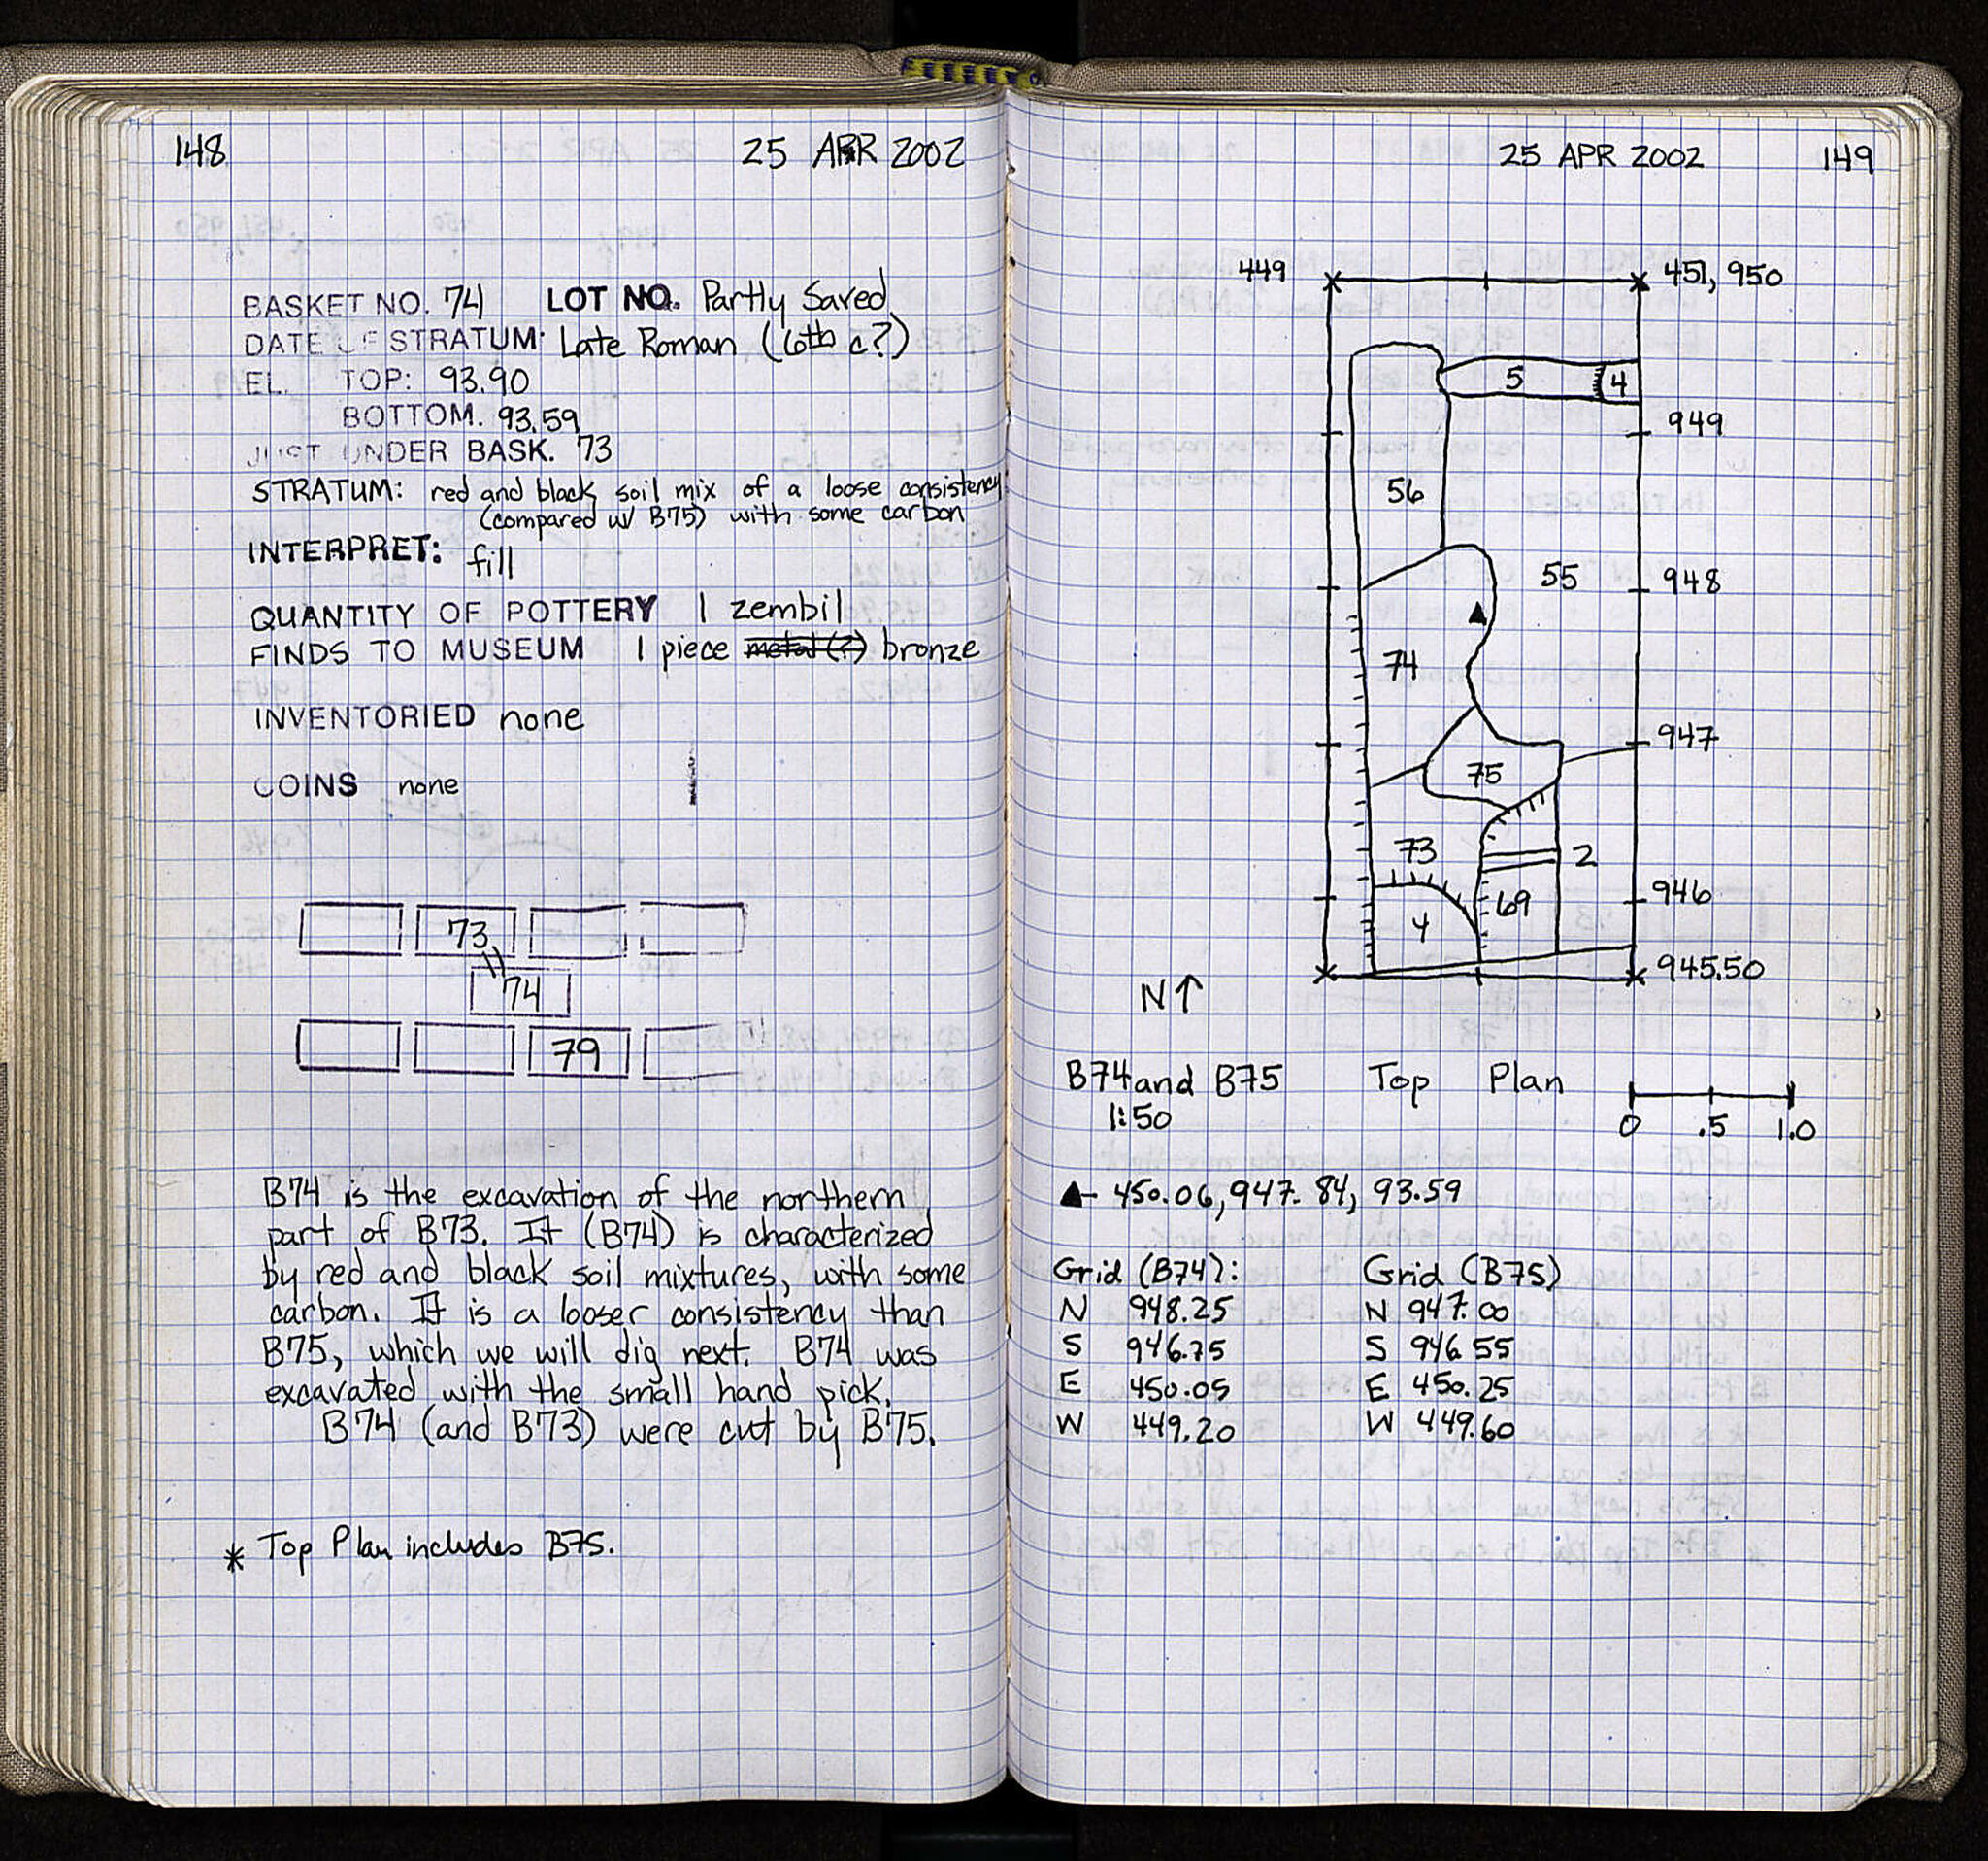 148
25 APR 2002
BASKET NO. 74 LOT NO. Partly Saved
DATE OF STRATUM: Late Roman (6th c?)
EL. TOP: 93.90
BOTTOM. 93.59
JUST UNDER BASK. 73
STRATUM: red and black soil mix of a loose consistency
(compared w/ B75) with some carbon
INTERPRET: fill
QUANTITY OF POTTERY 1 zembil
FINDS TO MUSEUM 1 piece metal (?) bronze
INVENTORIED none
COINS none
73
74
79
B74 is the excavation of the northern
part of B73. It (B74) is characterized
by red and black soil mixtures, with some
carbon. It is a looser consistency than
B75, which we will dig next. B74 was
excavated with the small hand pick.
B74 (and B73) were cut by B75.
* Top Plan includes B75.
25 APR 2002
149
449
451, 950
5
4
949
56
55
948
74
947
75
73
2
946
69
4
945.50
N↑
B74 and B75 Top Plan
1:50
0 .5 1.0
▲- 450.06, 947.84, 93.59
Grid (B74): Grid (B75)
N 948.25 N 947.00
S 946.75 S 946.55
E 450.05 E 450.25
W 449.20 W 449.60